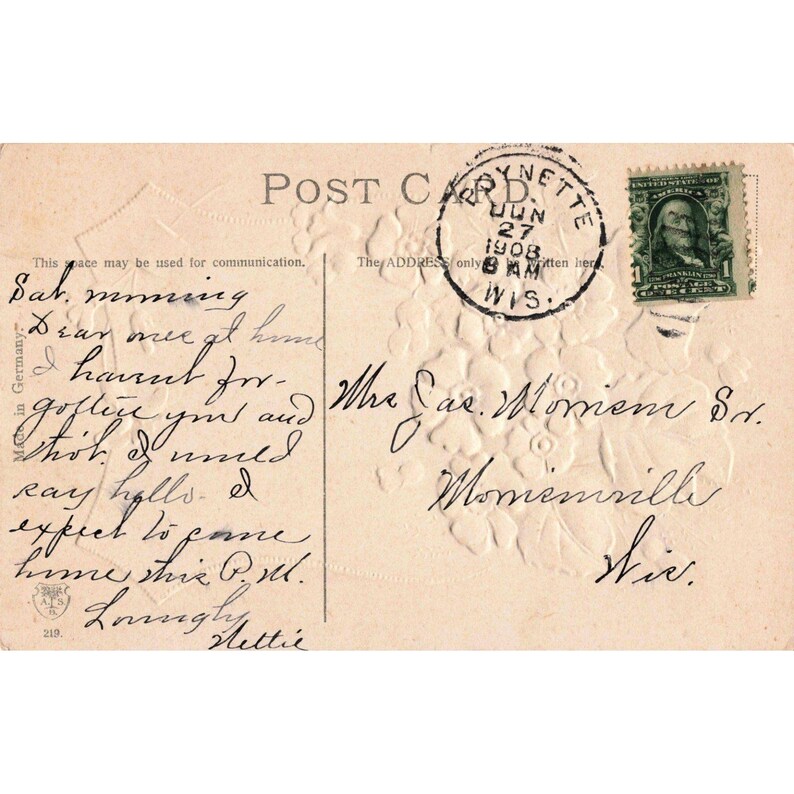 POST CARD
POYNETTE
JUN
27
1908
8 AM
WIS.
SERIES 1902
UNITED STATES OF
AMERICA
1 FRANKLIN 1
POSTAGE
ONE CENT
This space may be used for communication.
The ADDRESS only written here.
Made in Germany.
Sat. morning
Dear ones at home
I havent for-
gotten you and
thot I would
say hello. I
expect to come
home this P.M.
Lovingly
Nettie
Mrs Jas. Morrison Sr.
Morrisonville
Wis.
A. S.
B.
219.